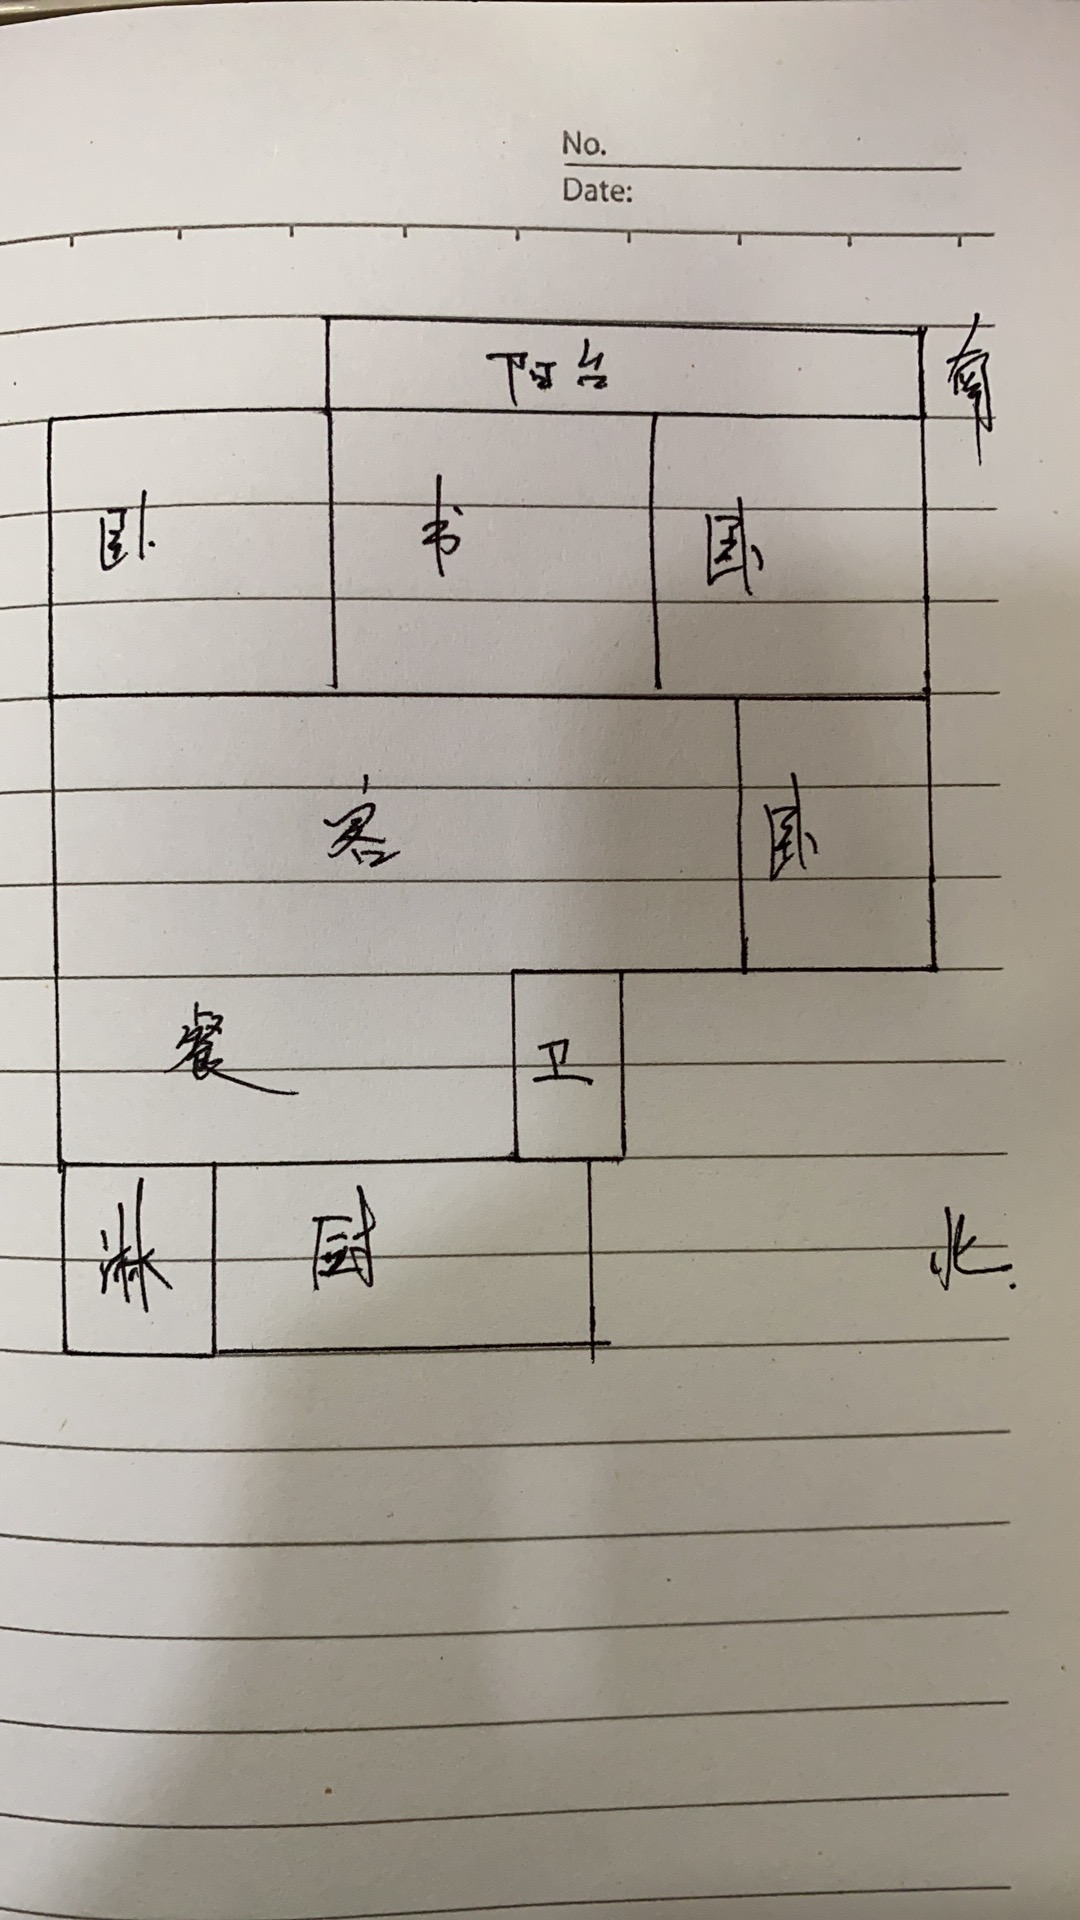 No.
Date:
阳台
南
卧
书
卧
客
卧
餐
卫
淋
厨
北